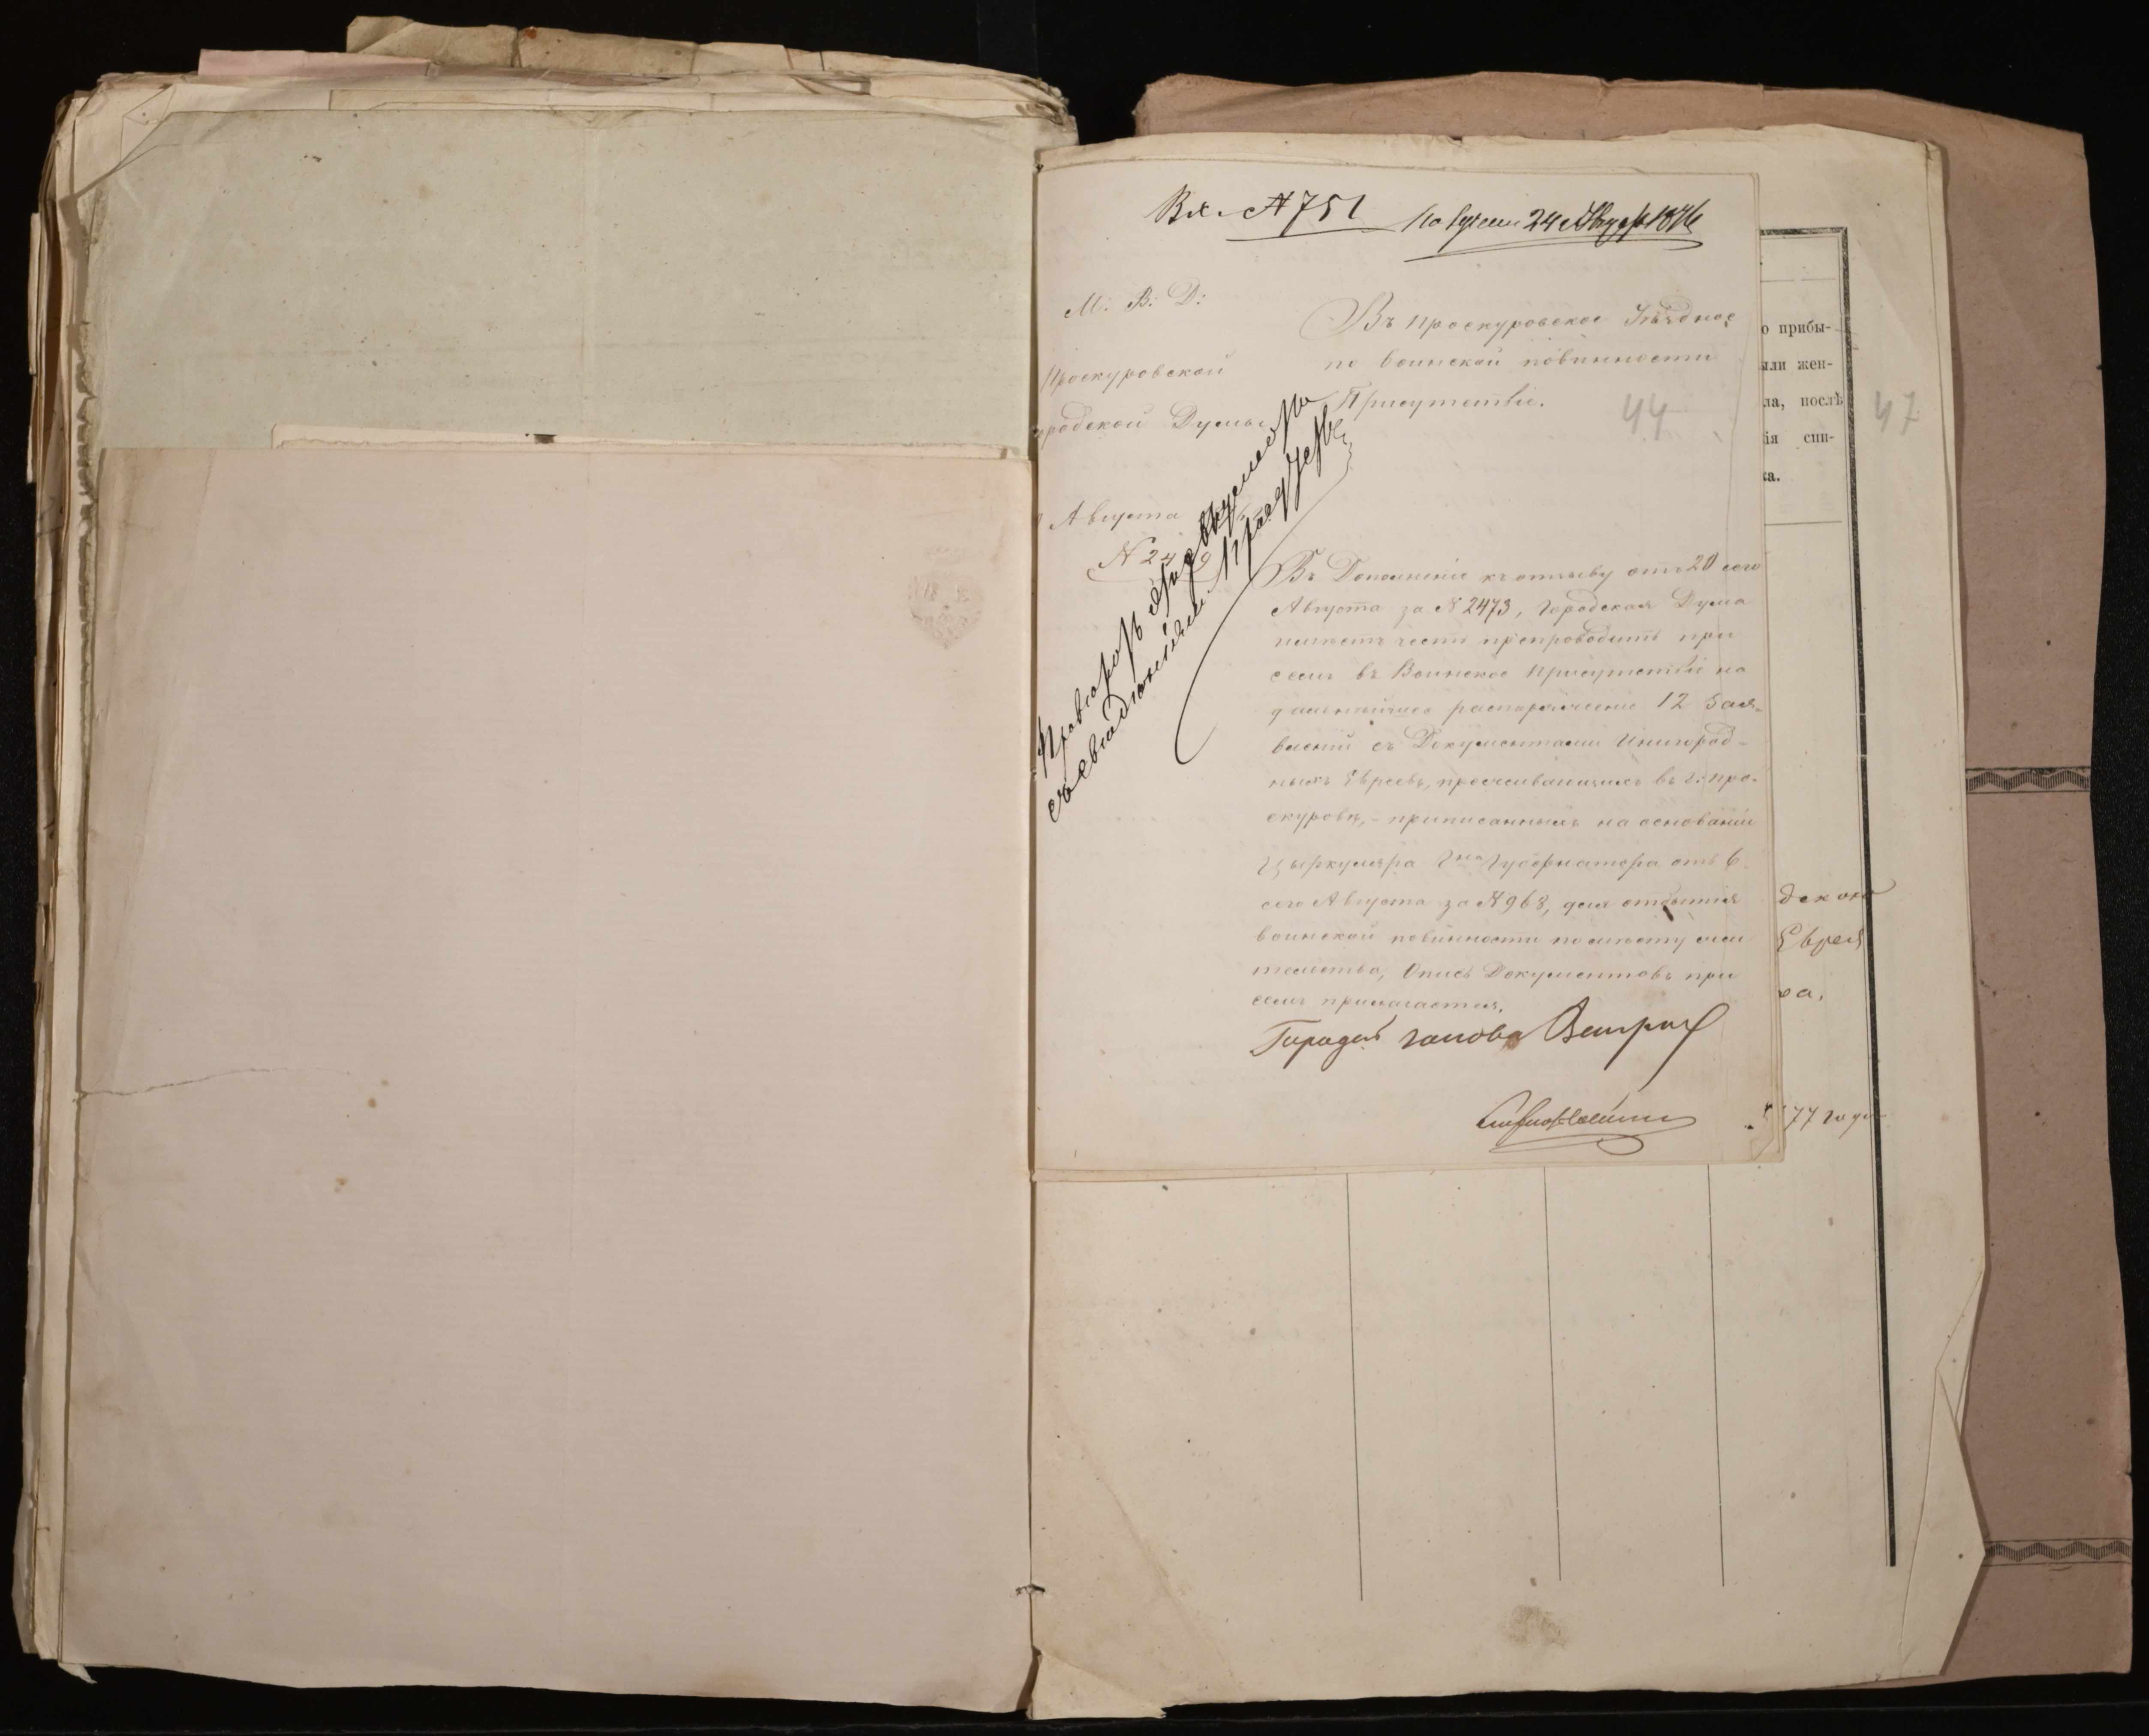 Вх. № 751 Получен 24 Августа 1876
М: В: Д:
Проскуровской
родской Думы
Августа
Въ Проскуровское Уѣздное
по воинской повинности
Присутствіе.
44
47
о прибы-
или жен-
ла, послѣ
ія спи-
ка.
Въ Дополненіе къ отзыву отъ 20 сего
Августа за № 2473, Городская Дума
имѣетъ честь препроводить при
семъ въ Воинское Присутствіе на
дальнѣйшее распоряженіе 12 заяв-
леній съ Документами Иногород-
ныхъ Евреевъ, проживающихъ въ г. Про-
скуровѣ, - приписаннымъ на основаніи
Цыркуляра Гна Губернатора отъ 6
сего Августа за № 968, для отбытія
воинской повинности по мѣсту жи
тельства, Опись Документовъ при
семъ прилагается.
Городской голова
Еврея
ва.
77 года